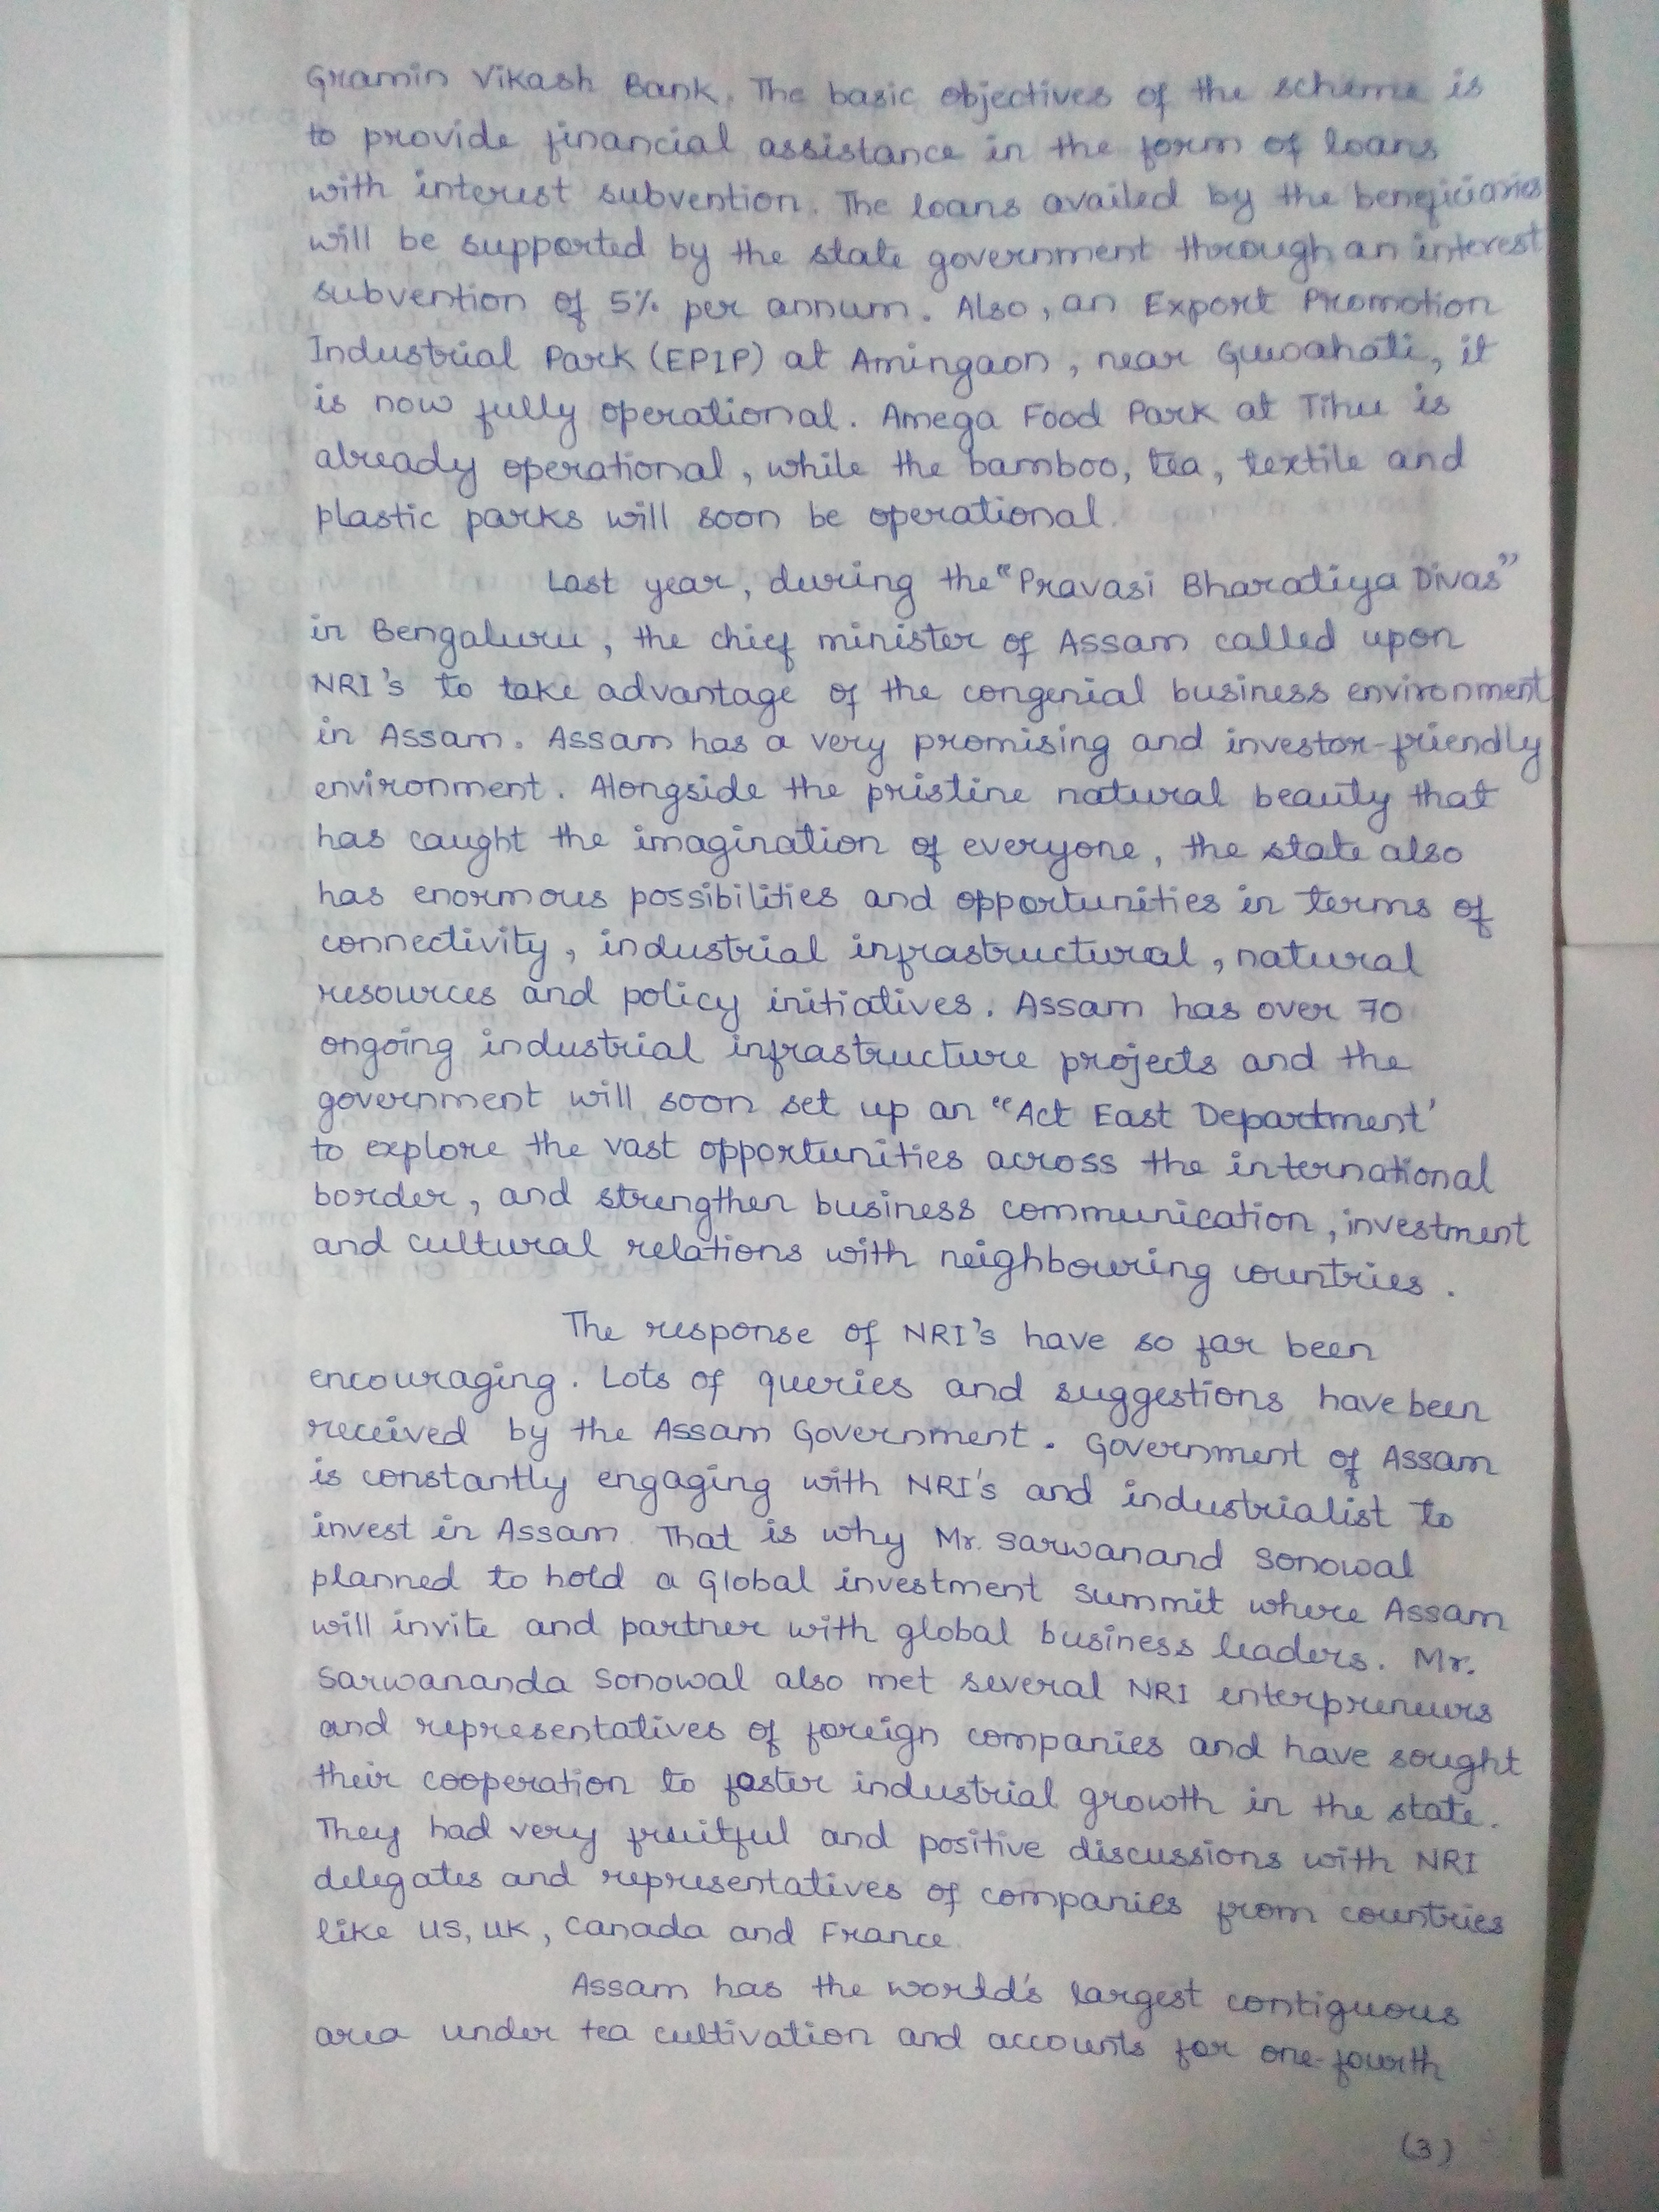 Gramin Vikash Bank. The basic objectives of the scheme is
to provide financial assistance in the form of loans
with interest subvention. The loans availed by the beneficiaries
will be supported by the state government through an interest
subvention of 5% per annum. Also, an Export Promotion
Industrial Park (EPIP) at Amingaon, near Guwahati, it
is now fully operational. Amega Food Park at Tihu is
already operational, while the bamboo, tea, textile and
plastic parks will soon be operational.
Last year, during the "Pravasi Bharatiya Divas"
in Bengaluru, the chief minister of Assam called upon
NRI's to take advantage of the congenial business environment
in Assam. Assam has a very promising and investor-friendly
environment. Alongside the pristine natural beauty that
has caught the imagination of everyone, the state also
has enormous possibilities and opportunities in terms of
connectivity, industrial infrastructural, natural
resources and policy initiatives. Assam has over 70
ongoing industrial infrastructure projects and the
government will soon set up an "Act East Department'
to explore the vast opportunities across the international
border, and strengthen business communication, investment
and cultural relations with neighbouring countries.
The response of NRI's have so far been
encouraging. Lots of queries and suggestions have been
received by the Assam Government. Government of Assam
is constantly engaging with NRI's and industrialist to
invest in Assam. That is why Mr. Sarwanand Sonowal
planned to hold a Global investment summit where Assam
will invite and partner with global business leaders. Mr.
Sarwananda Sonowal also met several NRI enterpreneurs
and representatives of foreign companies and have sought
their cooperation to foster industrial growth in the state.
They had very fruitful and positive discussions with NRI
delegates and representatives of companies from countries
like US, UK, Canada and France.
Assam has the world's largest contiguous
area under tea cultivation and accounts for one-fourth
(3)